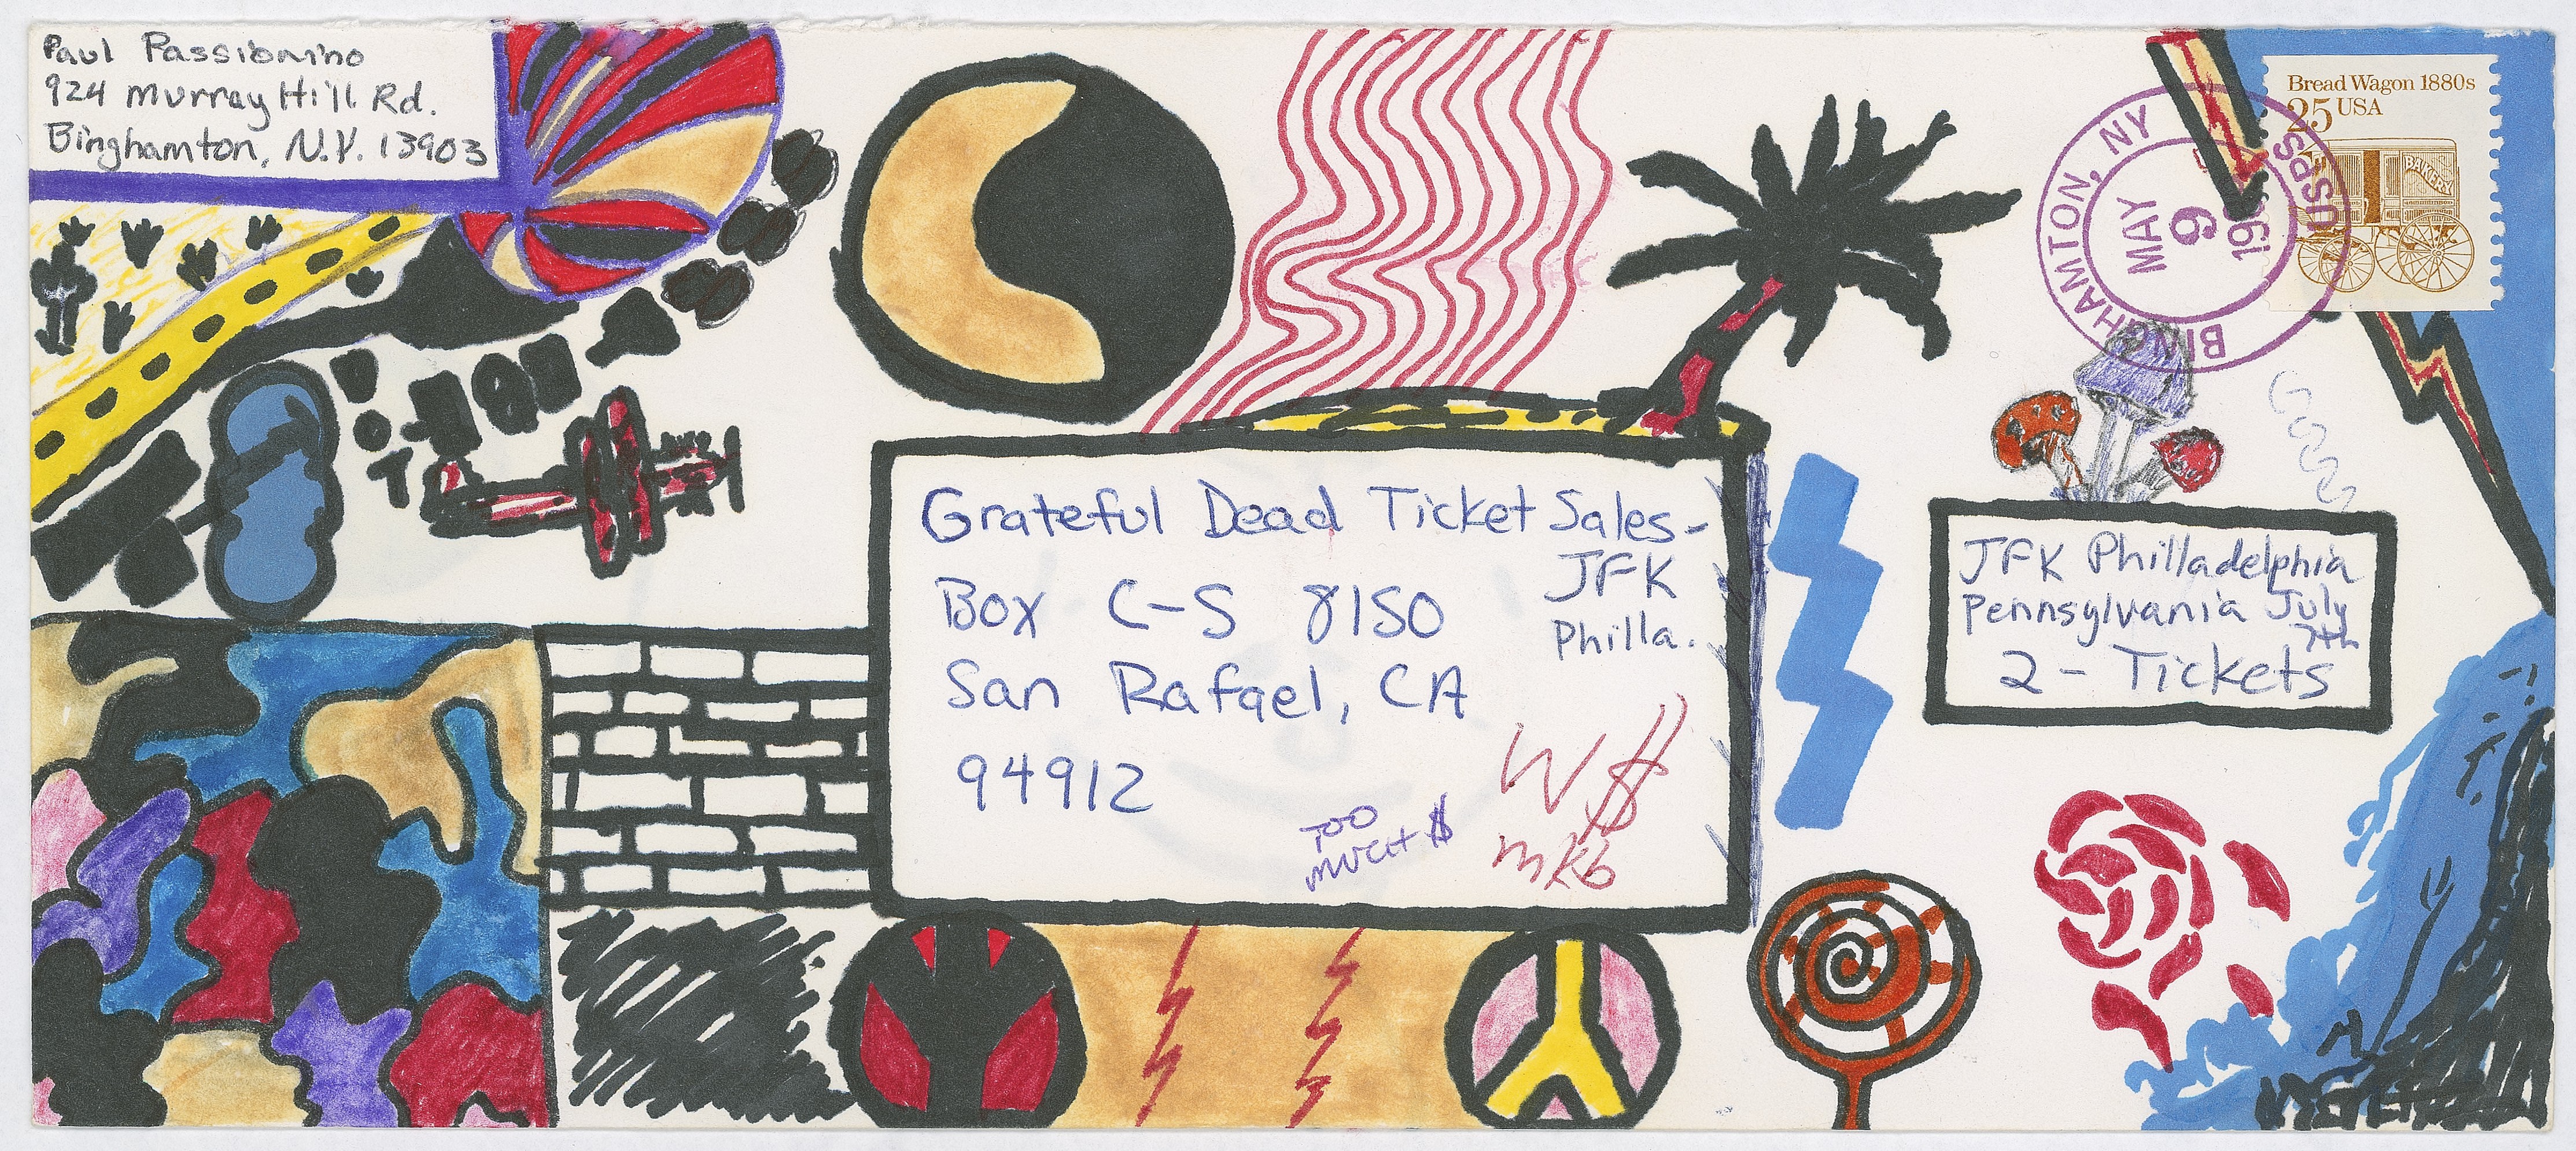 Paul Passionino
924 Murray Hill Rd.
Binghamton, N.Y. 13903
Bread Wagon 1880s
25 USA
BAKERY
BINGHAMTON, NY
USPS
MAY
9
Grateful Dead Ticket Sales-
JFK
Philla.
Box C-S 8150
San Rafael, CA
94912
TOO
MUCH $
W$
mkb
JFK Philladelphia
Pennsylvania July
7th
2- Tickets